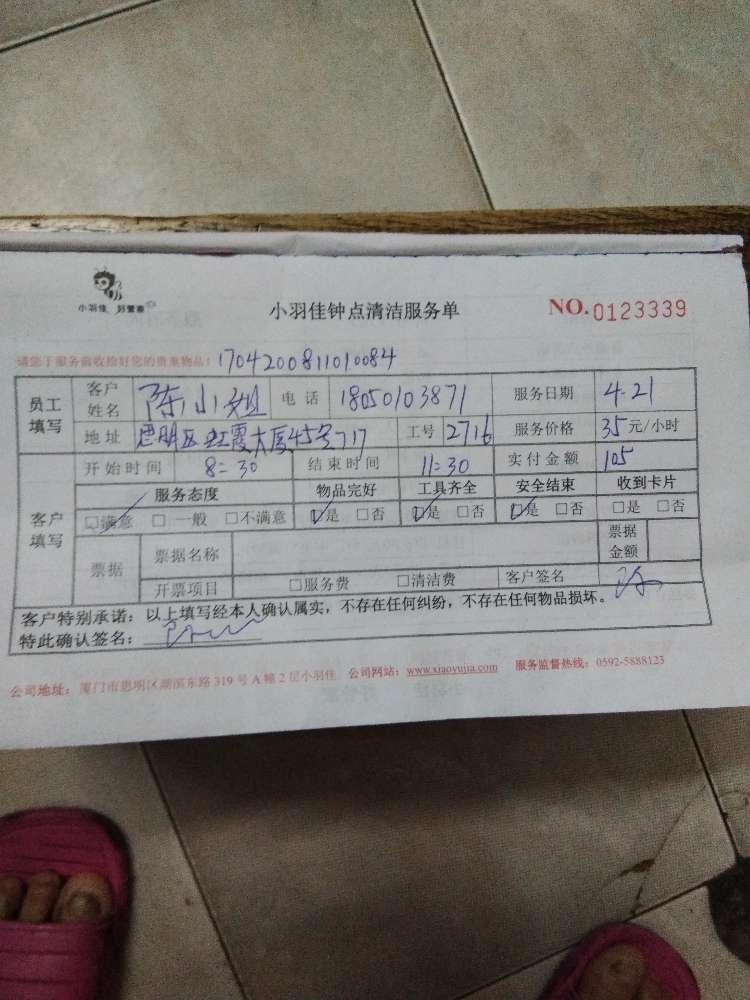 小羽佳 好管家
小羽佳钟点清洁服务单
NO.0123339
请您于服务前收拾好您的贵重物品: 1704200811010084
员工填写 客户姓名 陈小姐 电话 18050103871 服务日期 4.21
地址 思明区红霞大厦45号717 工号 2716 服务价格 35元/小时
客户填写 开始时间 8:30 结束时间 11:30 实付金额 105
服务态度 物品完好 工具齐全 安全结束 收到卡片
☑满意 □一般 □不满意 ☑是 □否 ☑是 □否 ☑是 □否 □是 □否
票据 票据名称 票据金额
开票项目 □服务费 □清洁费 客户签名
客户特别承诺:以上填写经本人确认属实,不存在任何纠纷,不存在任何物品损坏。
特此确认签名:
公司地址:厦门市思明区湖滨东路319号A幢2层小羽佳 公司网站:www.xiaoyujia.com 服务监督热线:0592-5888123